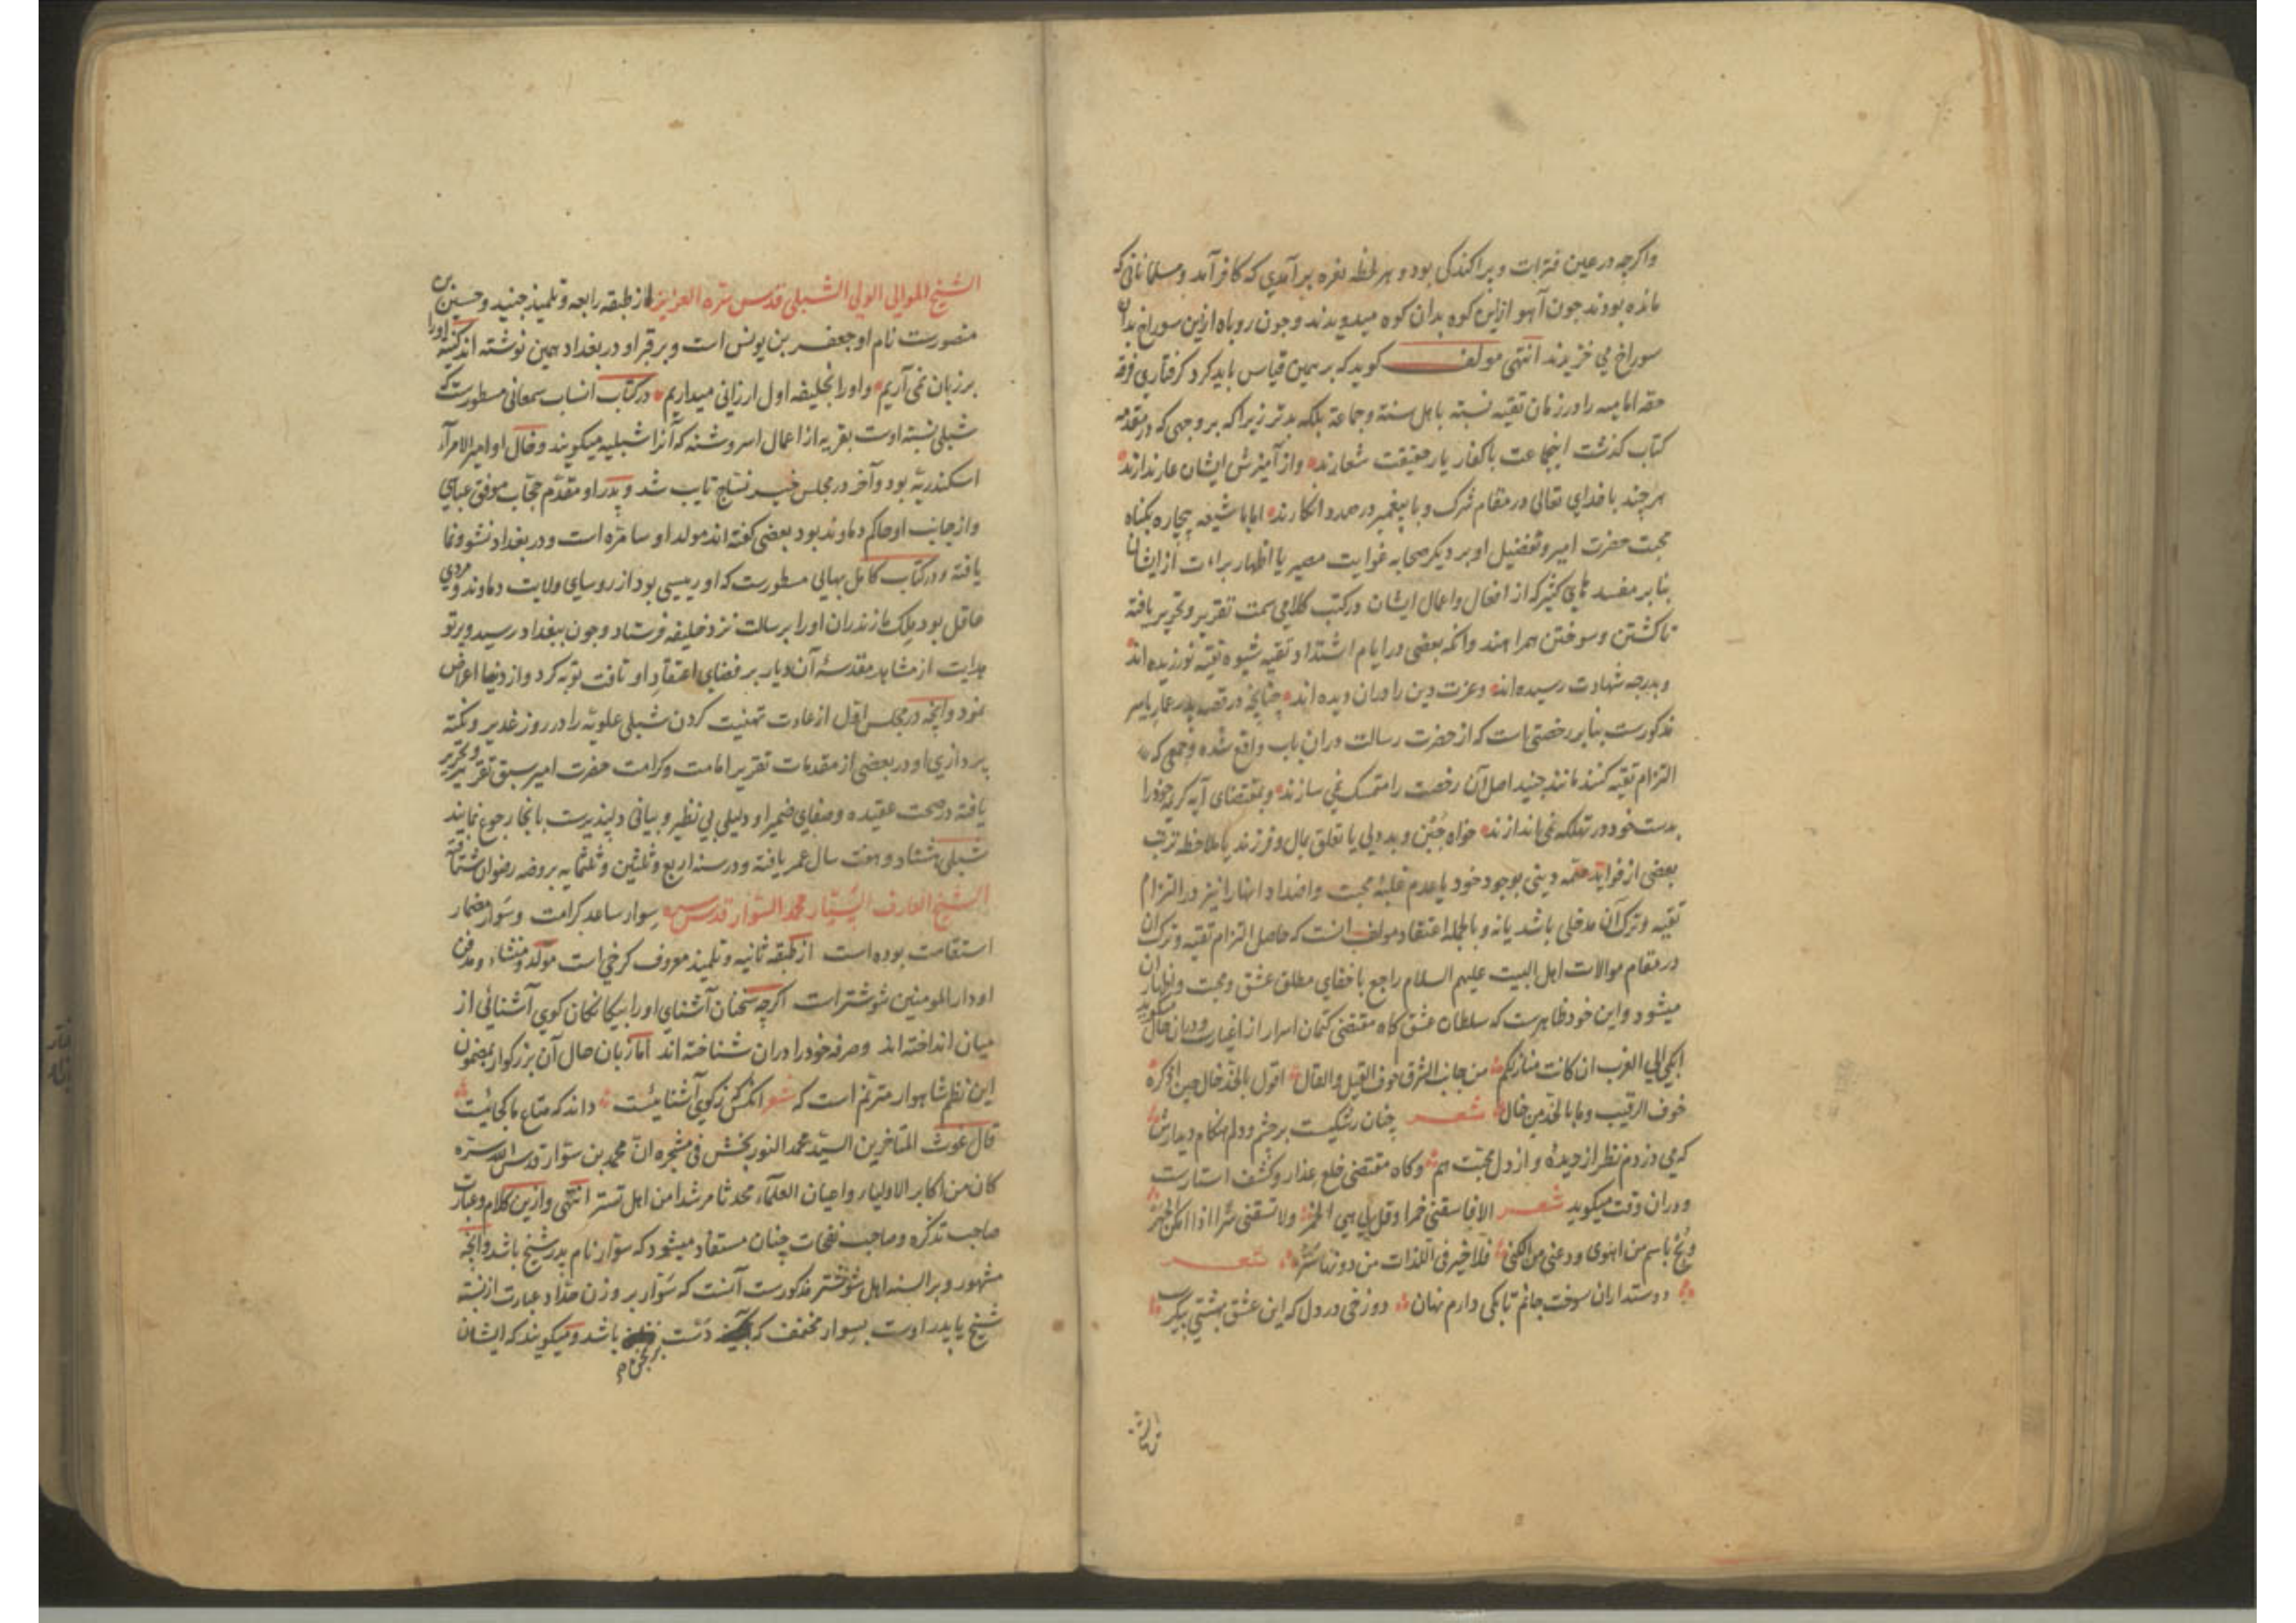 واکرچه در عین فترات و پراکندکی بود و هر لحظه نعره برآمدی که کافر آمد و مسلمانانی که
مانده بودند چون آهو ازاین کوه بدان کوه میدویدند و چون روباه ازین سوراخ بدان
سوراخ می خزیدند انتهی مولف کوید که بر همین قیاس باید کرد کرفتاری فرقه
حقه امامیه را در زمان تقیه نسبته باهل سنة وجماعة بلکه بدتر زیرا که بر وجهی که در مقدمه
کتاب کذشت اینجماعت باکفار یار حقیقت شعارند واز آمیزش ایشان عار ندارند
هر چند با خدای تعالی در مقام شرک و با پیغمبر در صدد انکارند اما با شیعه بیچاره بکناه
محبت حضرت امیر و تفضیل او بر دیکر صحابه غوایت مصیر یا اظهار براءت از ایشان
بنا بر مفسدهای کثیر که از افعال واعمال ایشان در کتب کلامی سمت تقریر و تحریر یافته
تا کشتن و سوختن همراهند وانکه بعضی در ایام اشتداد تقیه شیوه تقیه نورزیده اند
و بدرجه شهادت رسیده اند وعزت دین را دران دیده اند چنانچه در قصه پدر عمار یاسر
مذکورست بنا بر رخصتی است که از حضرت رسالت دران باب واقع شده و جمعی که
التزام تقیه کنند مانند جنید اصل آن رخصت را متمسک نمی سازند و بمقتضای آیه کریمه خود را
بدست خود در تهلکه نمی اندازند خواه جبن و بددلی یا تعلق بمال و فرزند یا ملاحظه ترتب
بعضی از فواید مهمه دینی بوجود خود یا عدم غلبه محبت واضداد اینها را نیز در التزام
تقیه و ترک آن مدخلی باشد یا نه و بالجمله اعتقاد مولف انست که حاصل التزام تقیه و ترک آن
در مقام موالات اهل البیت علیهم السلام راجع باخفای مطلق عشق و محبت و اظهار آن
میشود و این خود ظاهرست که سلطان عشق کاه مقتضی کتمان اسرار از اغیارست و دران حال میکوید
ابکی الی الغرب ان کانت منازلکم من جانب الشرق خوف القیل والقال اقول بالخد خال حین اذکره
خوف الرقیب وما بالخد من خال شعر چنان رشکیست بر چشم و دلم هنکام دیدارش
که می دزدم نظر از دیده و از دل محبت هم وکاه مقتضی خلع عذار و کشف استارست
ودران وقت میکوید شعر الا فاسقنی خمرا وقل لی هی الخمر ولا تسقنی سرا اذا امکن الجهر
وبح باسم من اهوی ودعنی من الکنی فلا خیر فی اللذات من دونها ستر شعر
دوستداران سوخت جانم تا بکی دارم نهان دوزخی در دل که این عشق بهشتی پیکرست
الشیخ الموالی الولی الشبلی قدس سره العزیز از طبقه رابعه و تلمیذ جنید و حسین بن
منصورست نام او جعفر بن یونس است و بر قبر او در بغداد همین نوشته اند کنیه او را
بر زبان نمی آریم و او را بخلیفه اول ارزانی میداریم در کتاب انساب سمعانی مسطورست که
شبلی نسبه اوست بقریه از اعمال اسروشنه که آنرا شبلیه میکویند و خال او امیر الامراء
اسکندریه بود و آخر در مجلس خیر نساج تایب شد و پدر او مقدم حجاب موفق عباسی
واز جانب او حاکم دماوند بود بعضی کفته اند مولد او سامره است و در بغداد نشو و نما
یافته و در کتاب کامل بهائی مسطورست که او رییسی بود از روسای ولایت دماوند و مردی
عاقل بود ملک مازندران او را برسالت نزد خلیفه فرستاد و چون ببغداد رسید و پرتو
هدایت از مشاهد مقدسه آن دیار بر فضای اعتقاد او تافت توبه کرد و از دنیا اعراض
نمود و آنچه در مجلس اول از عادت تهنیت کردن شبلی علویه را در روز غدیر و نکته
پردازی او در بعضی از مقدمات تقریر امامت و کرامت حضرت امیر سبق تقریر و تحریر
یافته در صحت عقیده و صفای ضمیر او دلیلی بی نظیر و بیانی دلپذیرست بانجا رجوع نمایند
شبلی هشتاد و هفت سال عمر یافته و در سنه اربع و ثلثین و ثلثمایه بروضه رضوان شتافت
الشیخ العارف السیار محمد السوار قدس سره سوار ساعد کرامت و سوار مضمار
استقامت بوده است از طبقه ثانیه و تلمیذ معروف کرخی است مولد و منشاء و مدفن
او دار المومنین شوشترات اکرچه سخنان آشنای او را بیکانکان کوی آشنائی از
میان انداخته اند و صرفه خود را دران شناخته اند اما زبان حال آن بزرکوار بمضمون
این نظم شاهوار مترنم است که شعر انکس که ز کوی آشنائیست داند که متاع ما کجائیست
قال غوث المتاخرین السید محمد النور بخش فی مشجره ان محمد بن سوار قدس الله سره
کان من اکابر الاولیاء واعیان العلماء محدثا مرشدا من اهل تستر انتهی وازین کلام و عبارت
صاحب تذکره و صاحب نفحات چنان مستفاد میشود که سوار نام پدر شیخ باشد و آنچه
مشهور و بر السنه اهل شوشتر مذکورست آنست که سوار بر وزن حداد عبارت از نسبته
شیخ یا پدر اوست بسوار مخفف که دست برنجن باشد و میکویند که ایشان